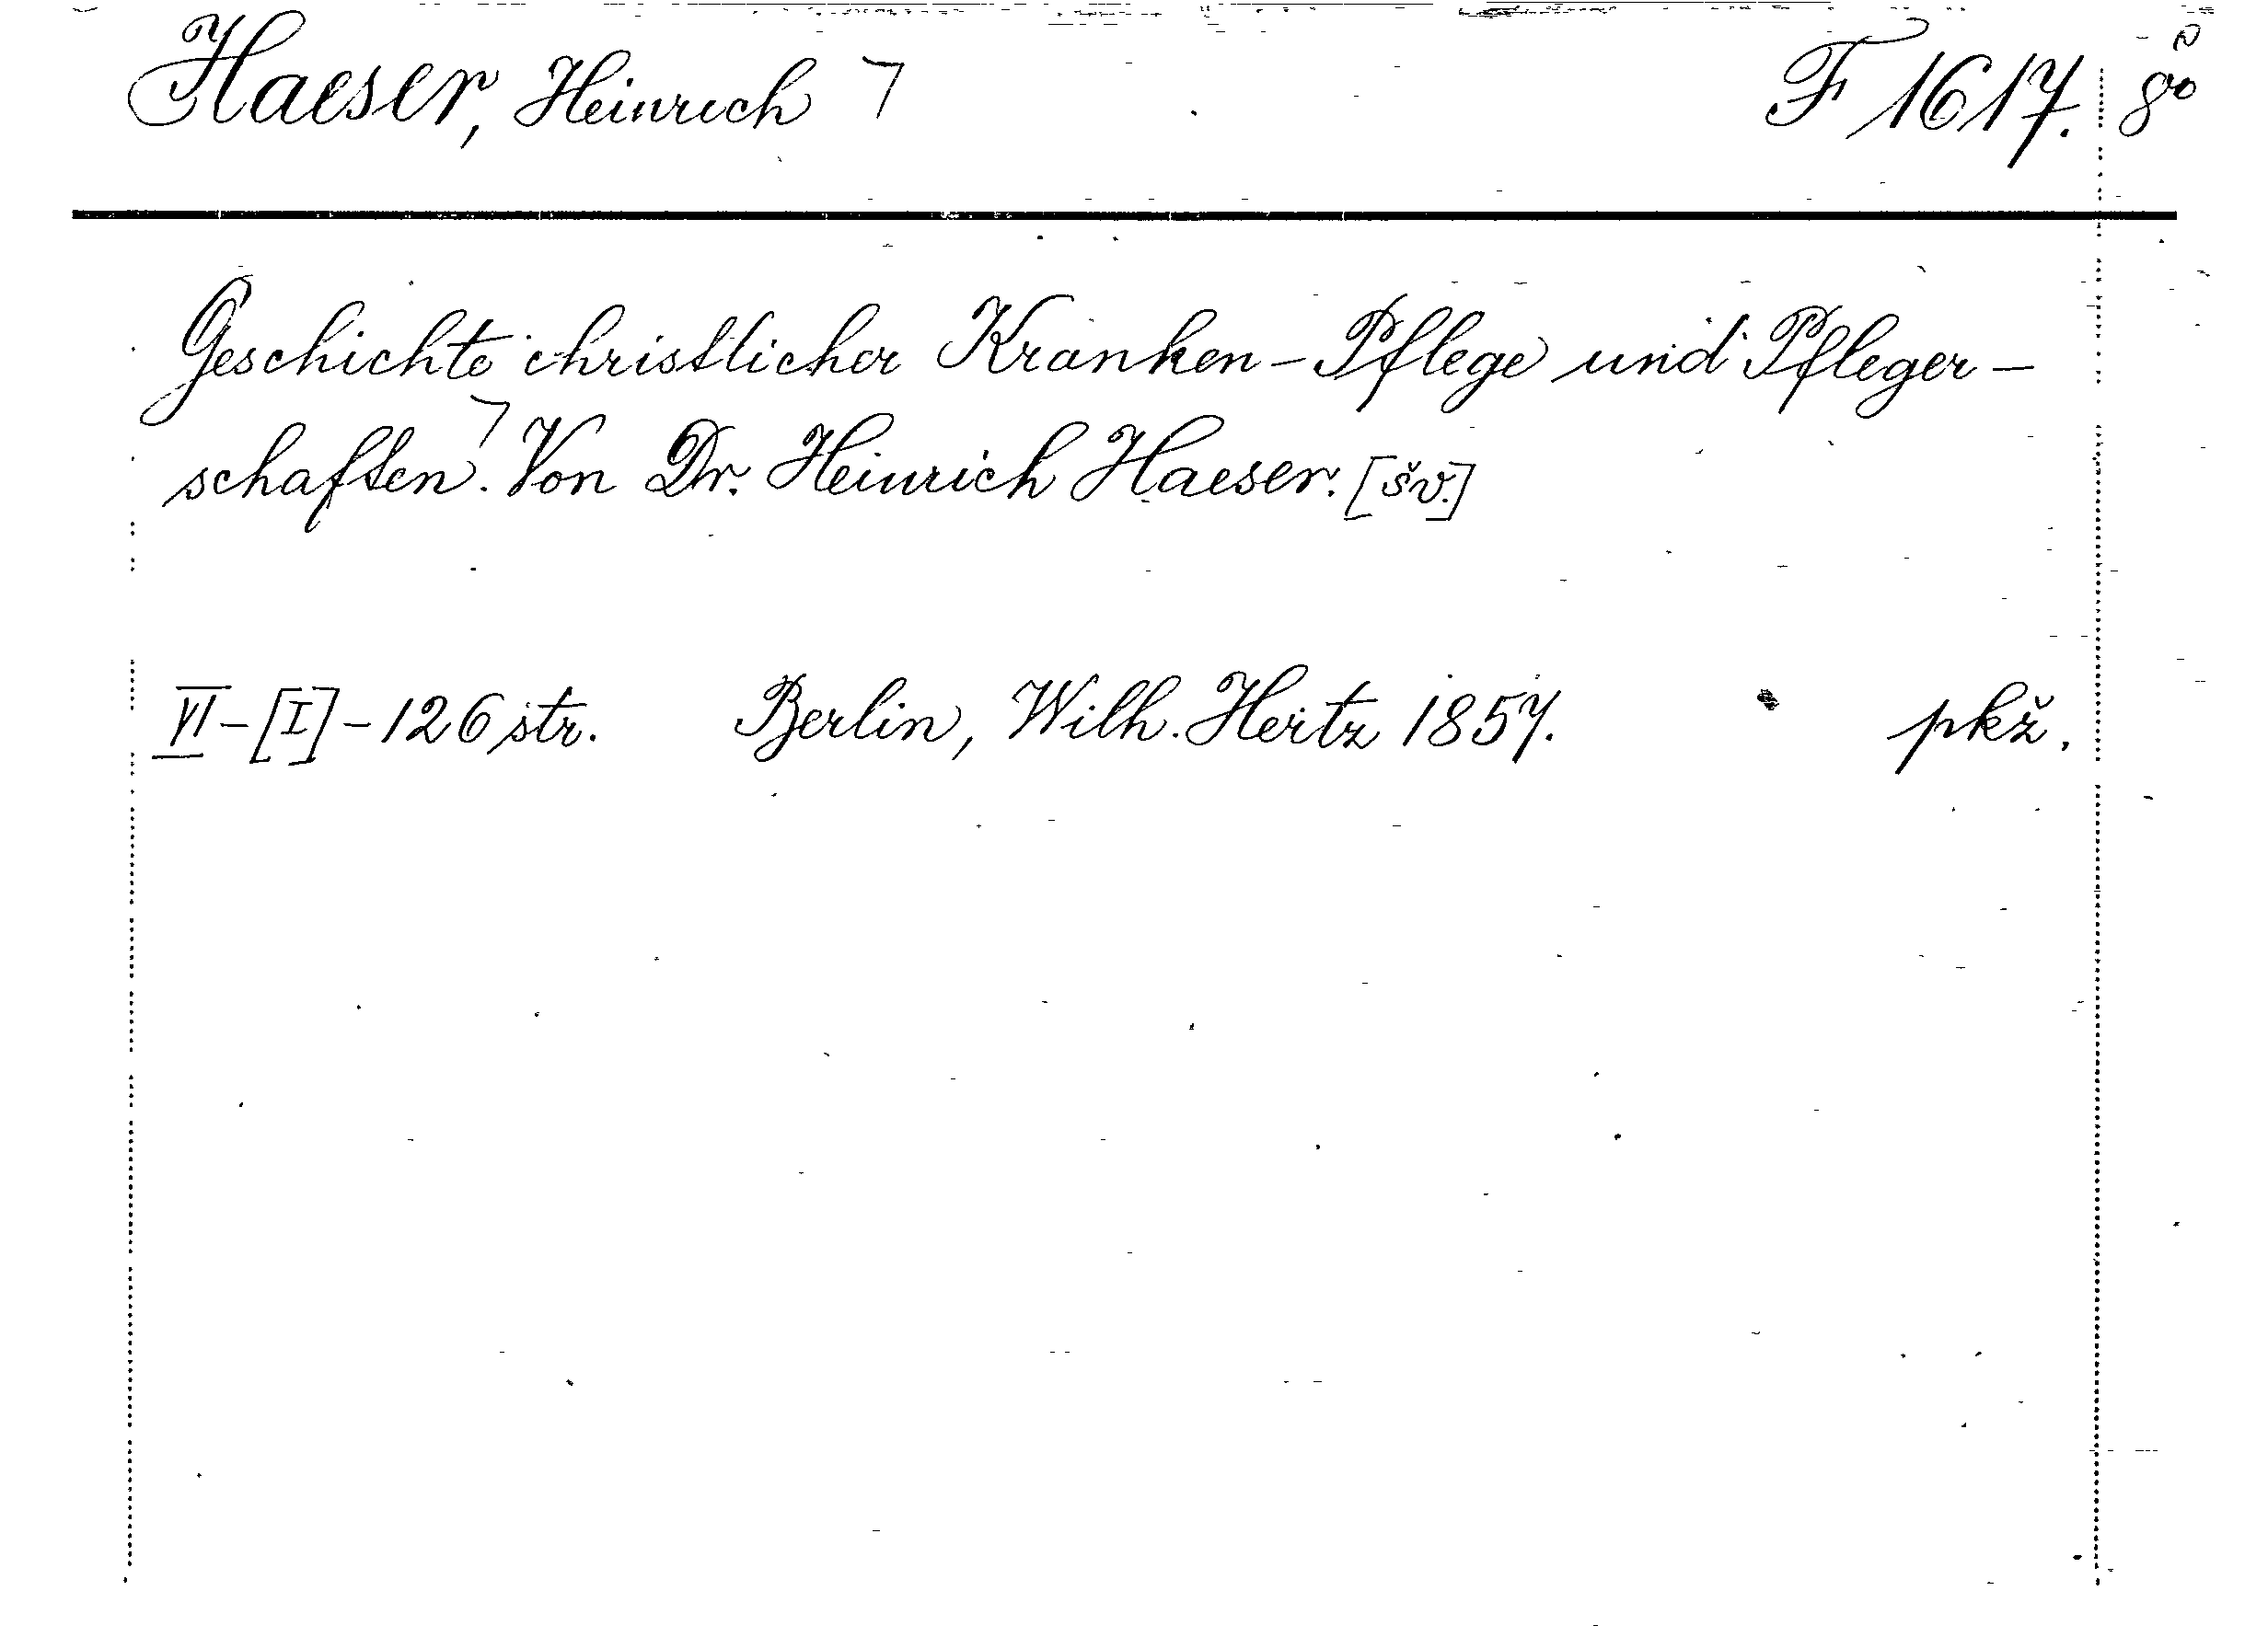 Haeser, Heinrich ⌝ F 1617. 8º
Geschichte christlicher Kranken-Pflege und Pfleger-
schaften⌝. Von Dr. Heinrich Haeser. [šv.]
VI-[I]-126 str. Berlin, Wilh. Hertz 1857. pkž.